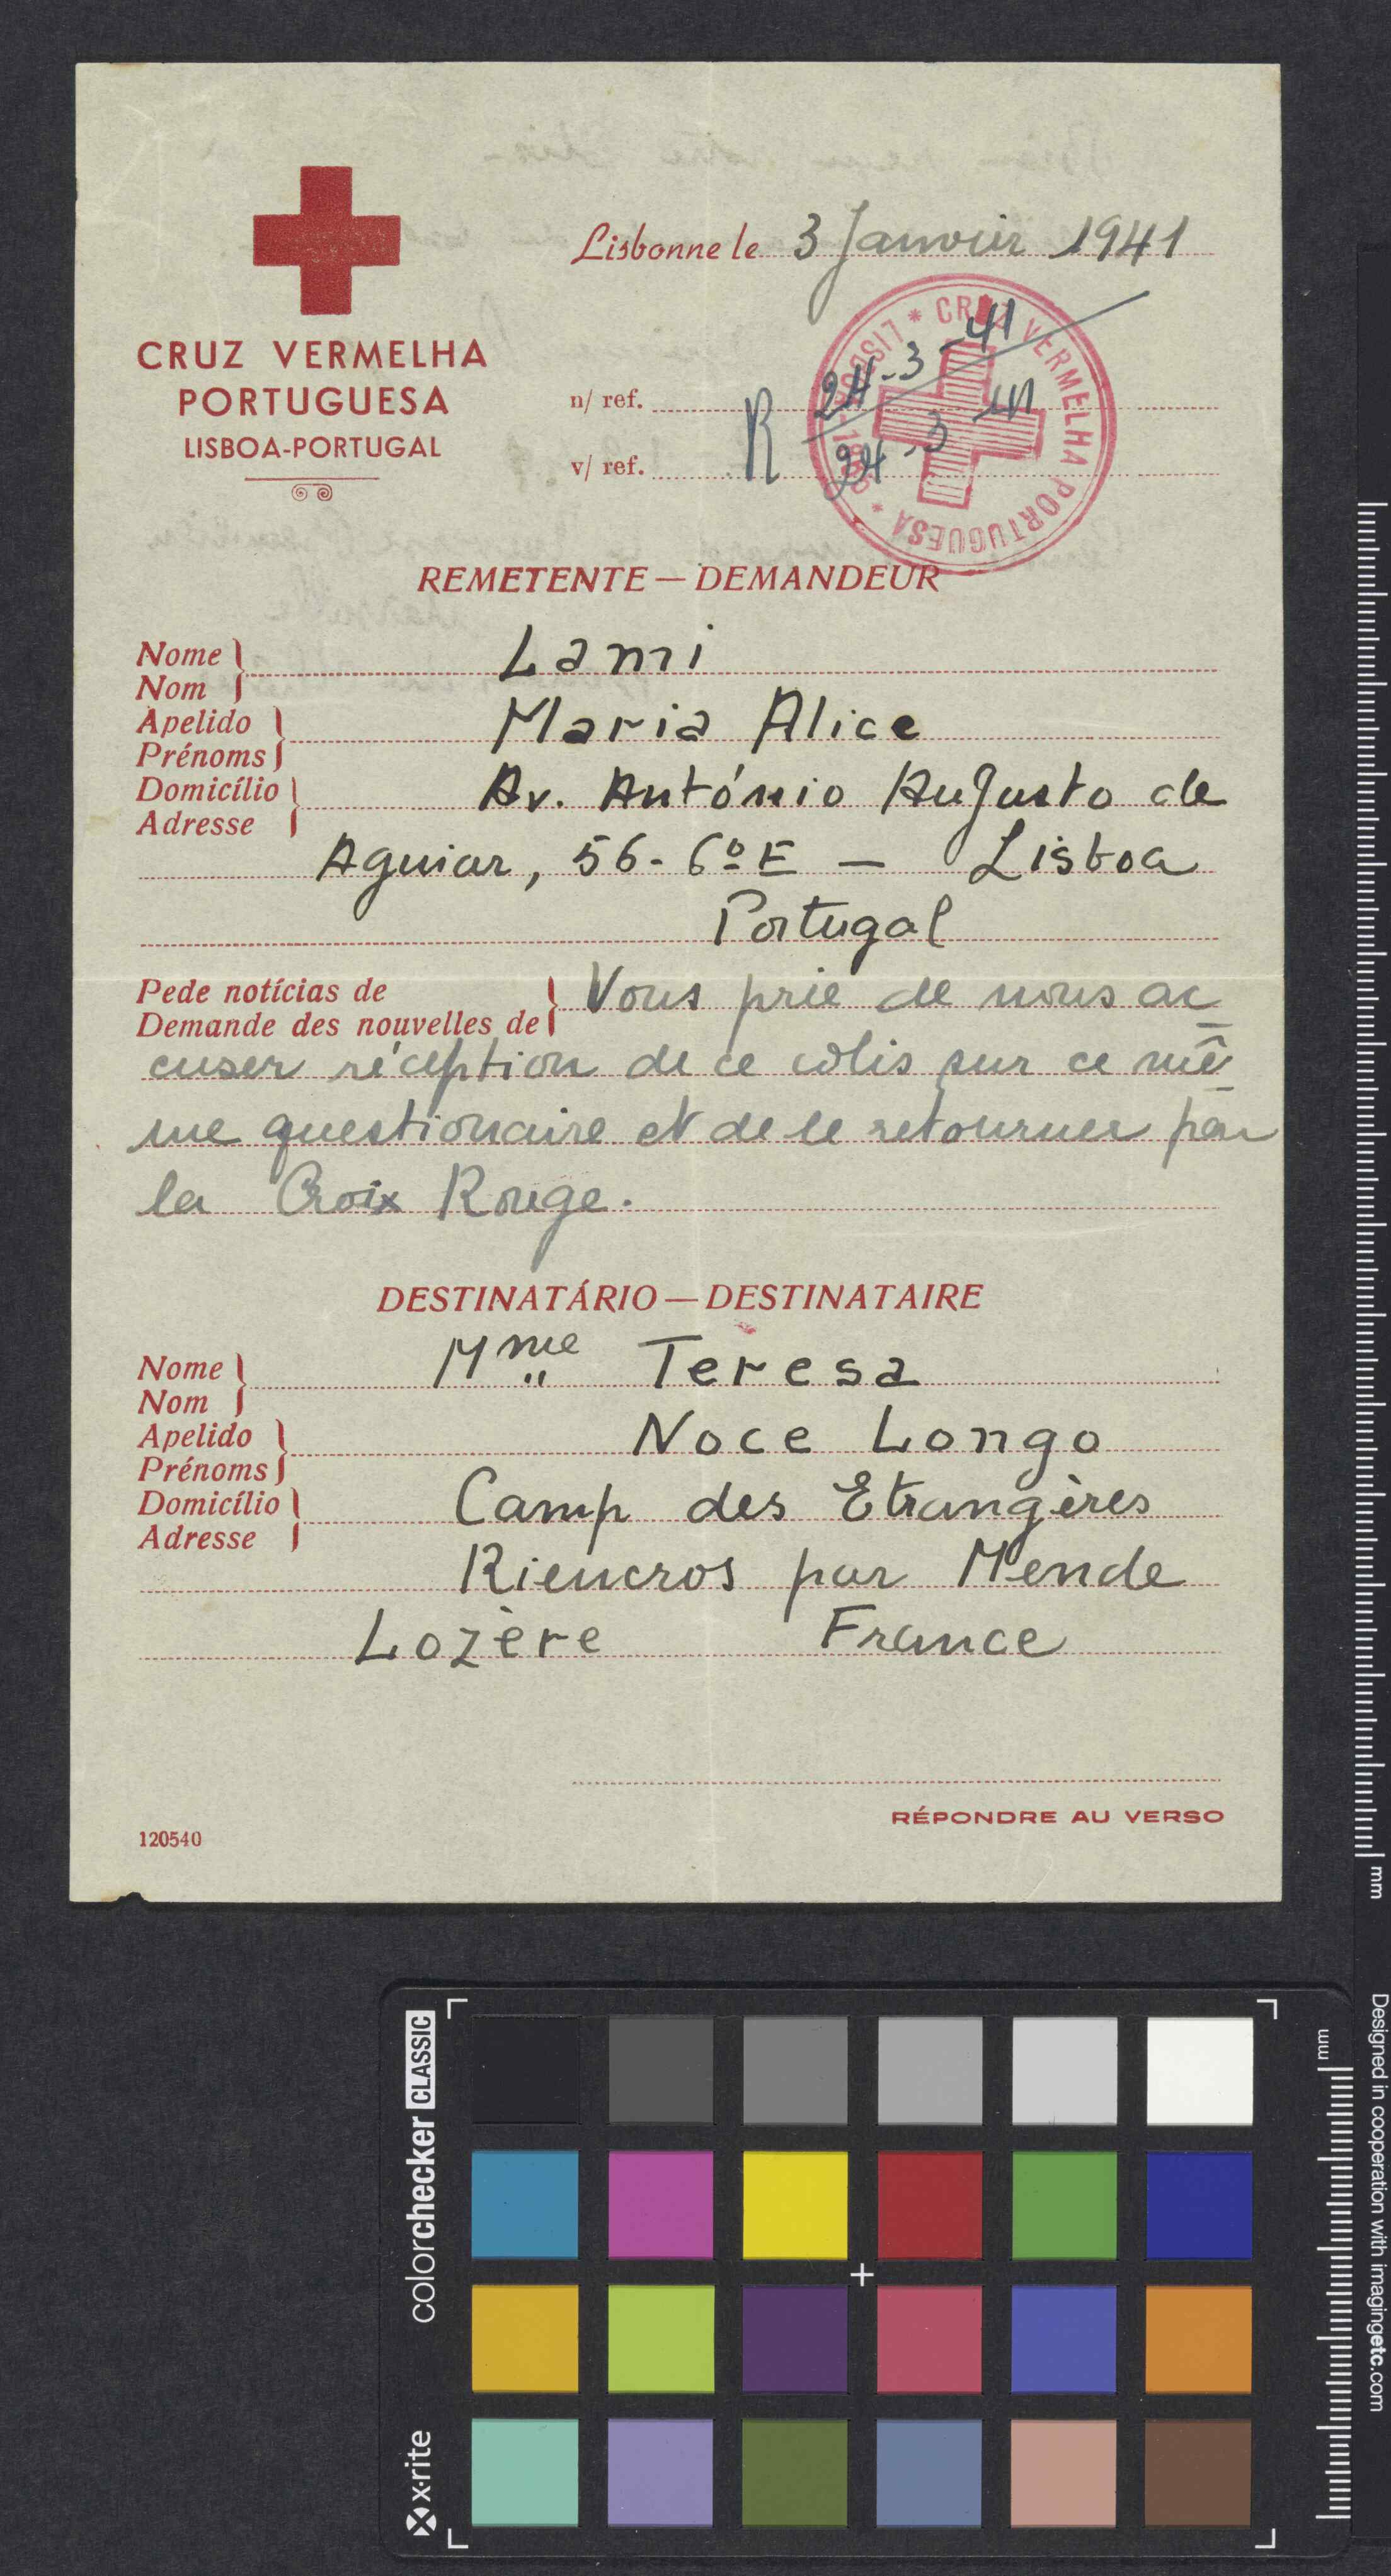 Lisbonne le 3 Janvier 1941
CRUZ VERMELHA
PORTUGUESA
LISBOA-PORTUGAL
n/ ref.
v/ ref.
R 24-3-41
24-3-41
* CRUZ VERMELHA PORTUGUESA * LISBOA-1865
REMETENTE — DEMANDEUR
Nome
Nom
Lami
Apelido
Prénoms
Maria Alice
Domicílio
Adresse
Av. António Augusto de
Aguiar, 56-6º E — Lisboa
Portugal
Pede notícias de
Demande des nouvelles de
Vous prie de nous ac
cuser réception de ce colis sur ce mê
me questionaire et de le retourner par
la Croix Rouge.
DESTINATÁRIO — DESTINATAIRE
Nome
Nom
Mme Teresa
Apelido
Prénoms
Noce Longo
Domicílio
Adresse
Camp des Etrangères
Rieucros par Mende
Lozère France
RÉPONDRE AU VERSO
120540
mm
colorchecker CLASSIC
x-rite
mm
Designed in cooperation with imagingetc.com